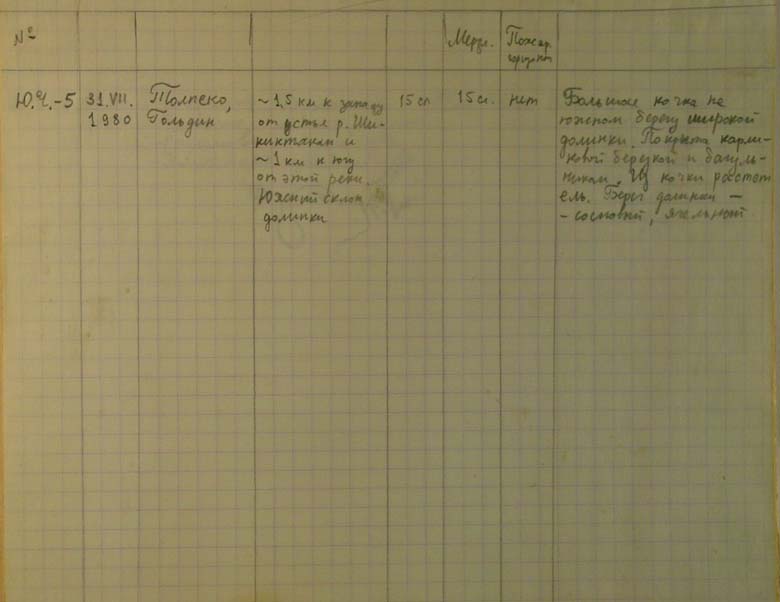 №
Мерзл. Пожар.
горизонт
Ю.Ч.-5 31.VII. Толпеко, ~1,5 км к западу 15 сл 15 сл. нет Большая кочка на
1980 Гольдин от устья р. Чи- южном берегу широкой
и долинки. Покрыта карли-
~1 км к югу ковой березкой и багуль-
от этой реки. ником. Из кочки растет
Южный склон ель. Берег долинки —
долинки - сосновый, ягельный